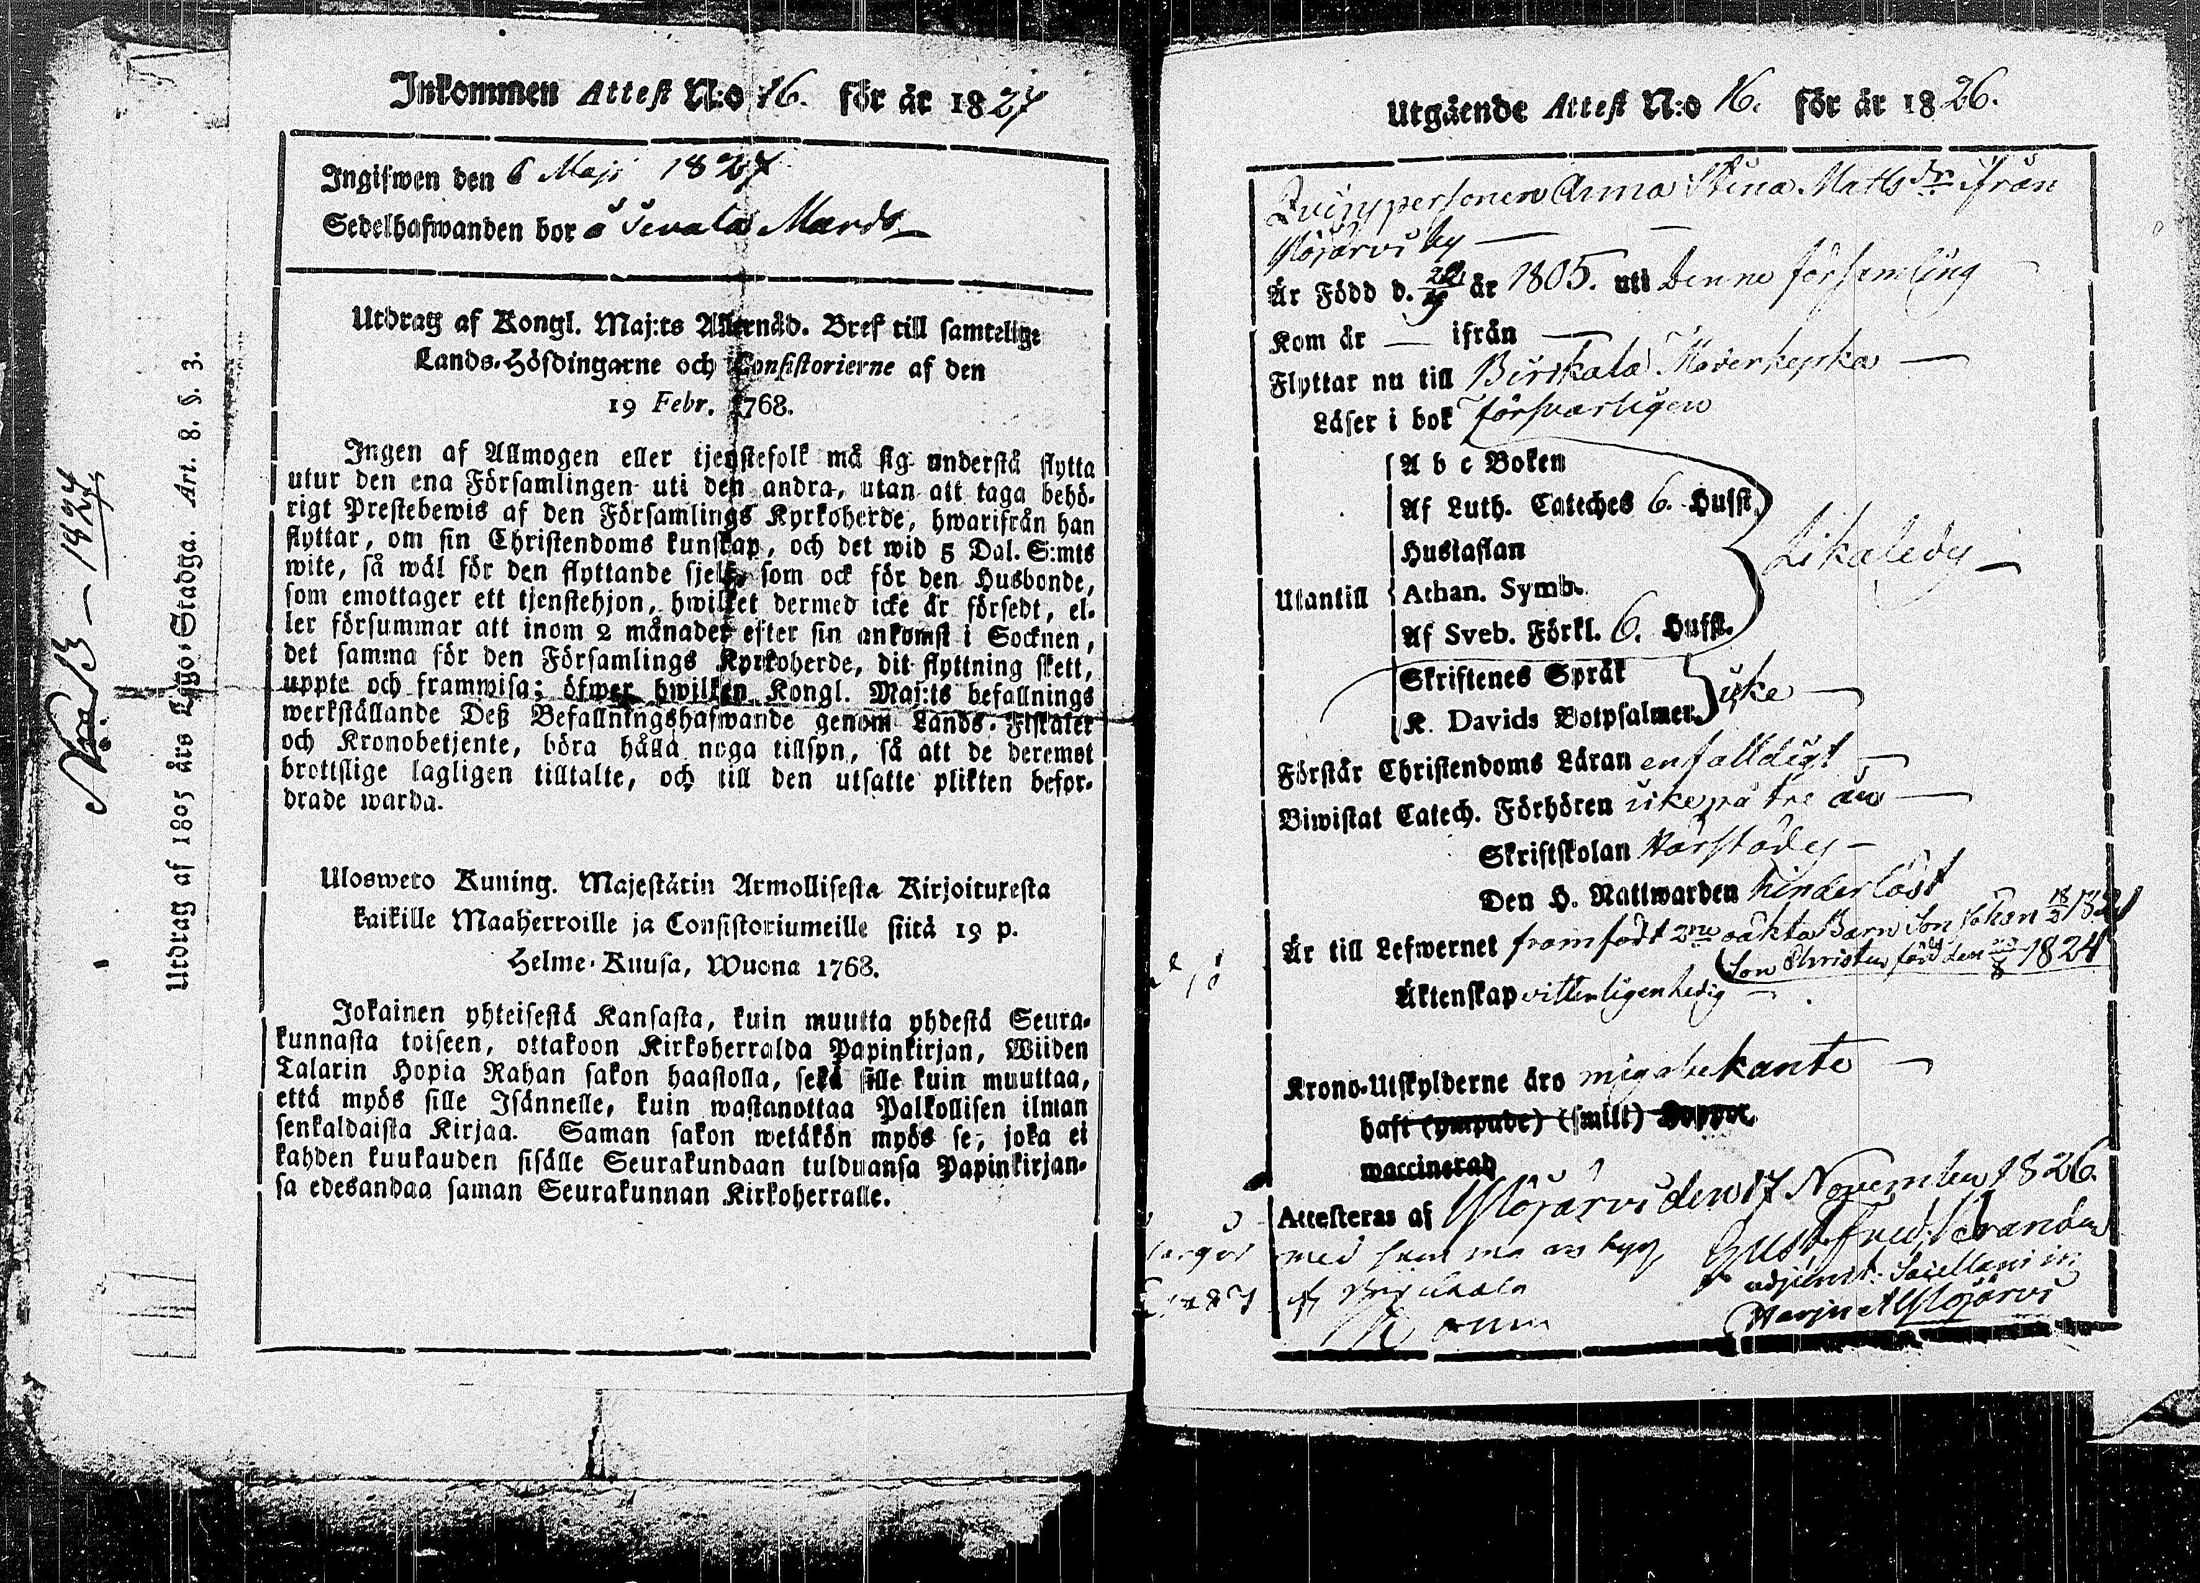 Inkommen Attest N:o 16. för år 1827
Ingifwen den 6 Maji 1827
Sedelhafwanden bor å Sevala Mards
Utdrag af Kongl. Maj:ts Allernåd. Bref till samtelige
Lands-Höfdingarne och Consistorierne af den
19 Febr. 1768.
Ingen af Allmogen eller tjenstefolk må sig understå flytta
utur den ena Församlingen uti den andra, utan att taga behö-
rigt Prestebewis af den Församlings Kyrkoherde, hwarifrån han
flyttar, om sin Christendoms kunskap, och det wid 5 Dal. S:mts
wite, så wäl för den flyttande sjelf, som ock för den Husbonde,
som emottager ett tjenstehjon, hwilket dermed icke är försedt, el-
ler försummar att inom 2 månader efter sin ankomst i Socknen,
det samma för den Församlings Kyrkoherde, dit flyttning skett,
uppte och framwisa; öfwer hwilken Kongl. Maj:ts befallnings
werkställande Deß Befallningshafwande genom Lands-Fiskaler
och Kronobetjente, böra hålla noga tillsyn, så att de deremot
brottslige lagligen tilltalte, och till den utsatte plikten befor-
drade warda.
Uloswero Kuning. Majestätin Armollisesta Kirjoituxesta
kaikille Maaherroille ja Consistoriumeille siitä 19 p.
Helme-Kuusa, Wuona 1768.
Jokainen yhteisestä Kansasta, kuin muutta yhdestä Seura-
kunnasta toiseen, ottakoon Kirkoherralda Papinkirjan, Wiiden
Talarin Hopia Rahan sakon haastolla, sekä sille kuin muuttaa,
että myös sille Isännelle, kuin wastanottaa Palkollisen ilman
senkaldaista Kirjaa. Saman sakon wetäkön myös se, joka ei
kahden kuukauden sisälle Seurakundaan tulduansa Papinkirjan-
sa edesandaa saman Seurakunnan Kirkoherralle.
N:o 13 – 1827
Utdrag af 1805 års Lego-Stadga. Art. 8. §. 3.
Utgående Attest N:o 16. för år 1826.
Qvinspersonen Anna Stina Matts dr ifrån
Ylöjärvi by
Är Född d. år 1805. uti Denne församling
Kom år — ifrån —
Flyttar nu till Birkala Moderkyrka
Läser i bok försvarligen
A b c Boken
Af Luth. Cateches 6. Husst.
Hustaflan
Utantill
Athan. Symb.
Af Sveb. Förkl. 6. Husst.
Likaledes
Skriftenes Språk
K. Davids Botpsalmer
icke
Förstår Christendoms Läran enfalldigt
Biwistat Catech. Förhören icke på tre år
Skriftskolan
Den H. Nattwarden hinderlöst
Är till Lefwernet framfödt 2ne oäkta Barn Son Johan 1821
Son Christer född den 1824
Äktenskap vitterligen ledig
Krono-Utskylderne äro mig obekante
haft (ympade) (smitt) Koppor
waccinerad
Attesteras af Ylöjärvi den 17 November 1826.
Gust. Fred. Granöen
adjunct. Sacellani in
Harju et Ylöjärvi